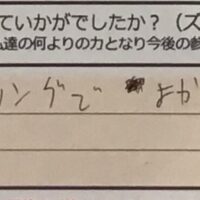 ていかがでしたか？（ズ
達の何よりの力となり今後の参
ングで よか